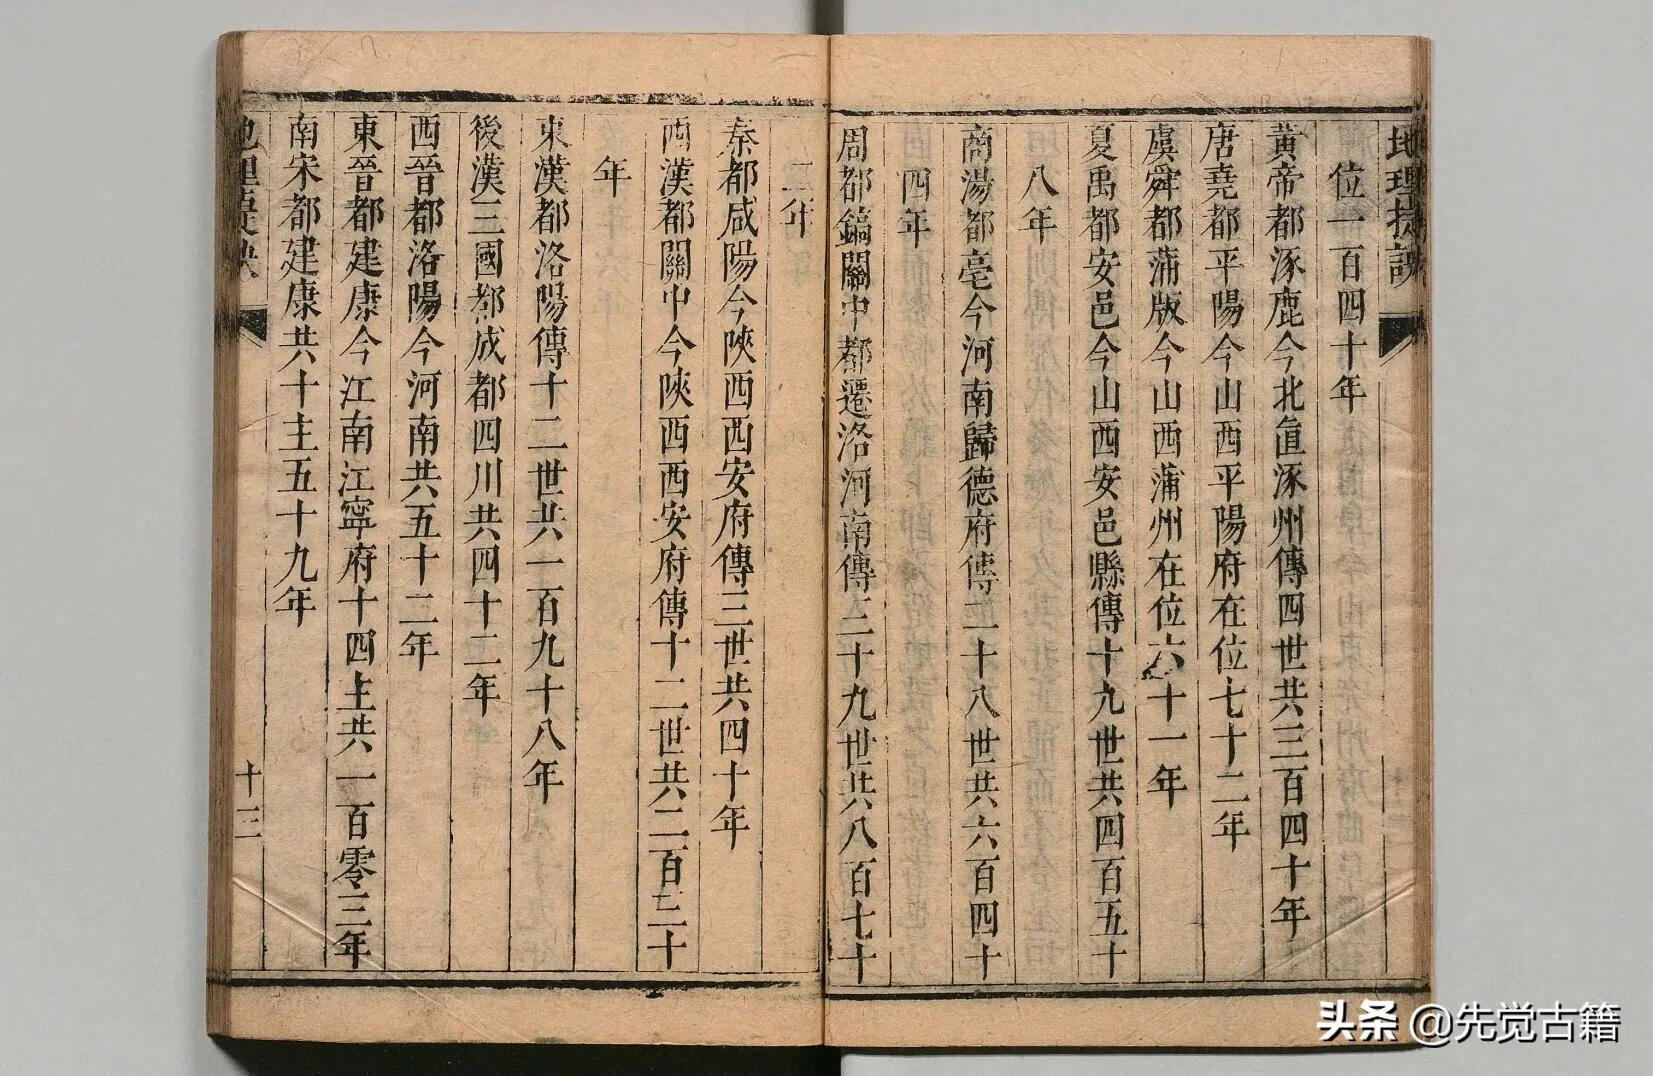 地理捷訣
位一百四十年
黃帝都涿鹿今北直涿州傳四世共三百四十年
唐堯都平陽今山西平陽府在位七十二年
虞舜都蒲版今山西蒲州在位六十一年
夏禹都安邑今山西安邑縣傳十九世共四百五十
八年
商湯都亳今河南歸德府傳二十八世共六百四十
四年
周都鎬關中都遷洛河南傳三十九世共八百七十
二年
秦都咸陽今陝西西安府傳三世共四十年
西漢都關中今陝西西安府傳十二世共二百三十
年
東漢都洛陽傳十二世共一百九十八年
後漢三國都成都四川共四十二年
西晉都洛陽今河南共五十二年
東晉都建康今江南江寧府十四主共一百零三年
南宋都建康共十主五十九年
地理捷訣
十三
头条 @先觉古籍